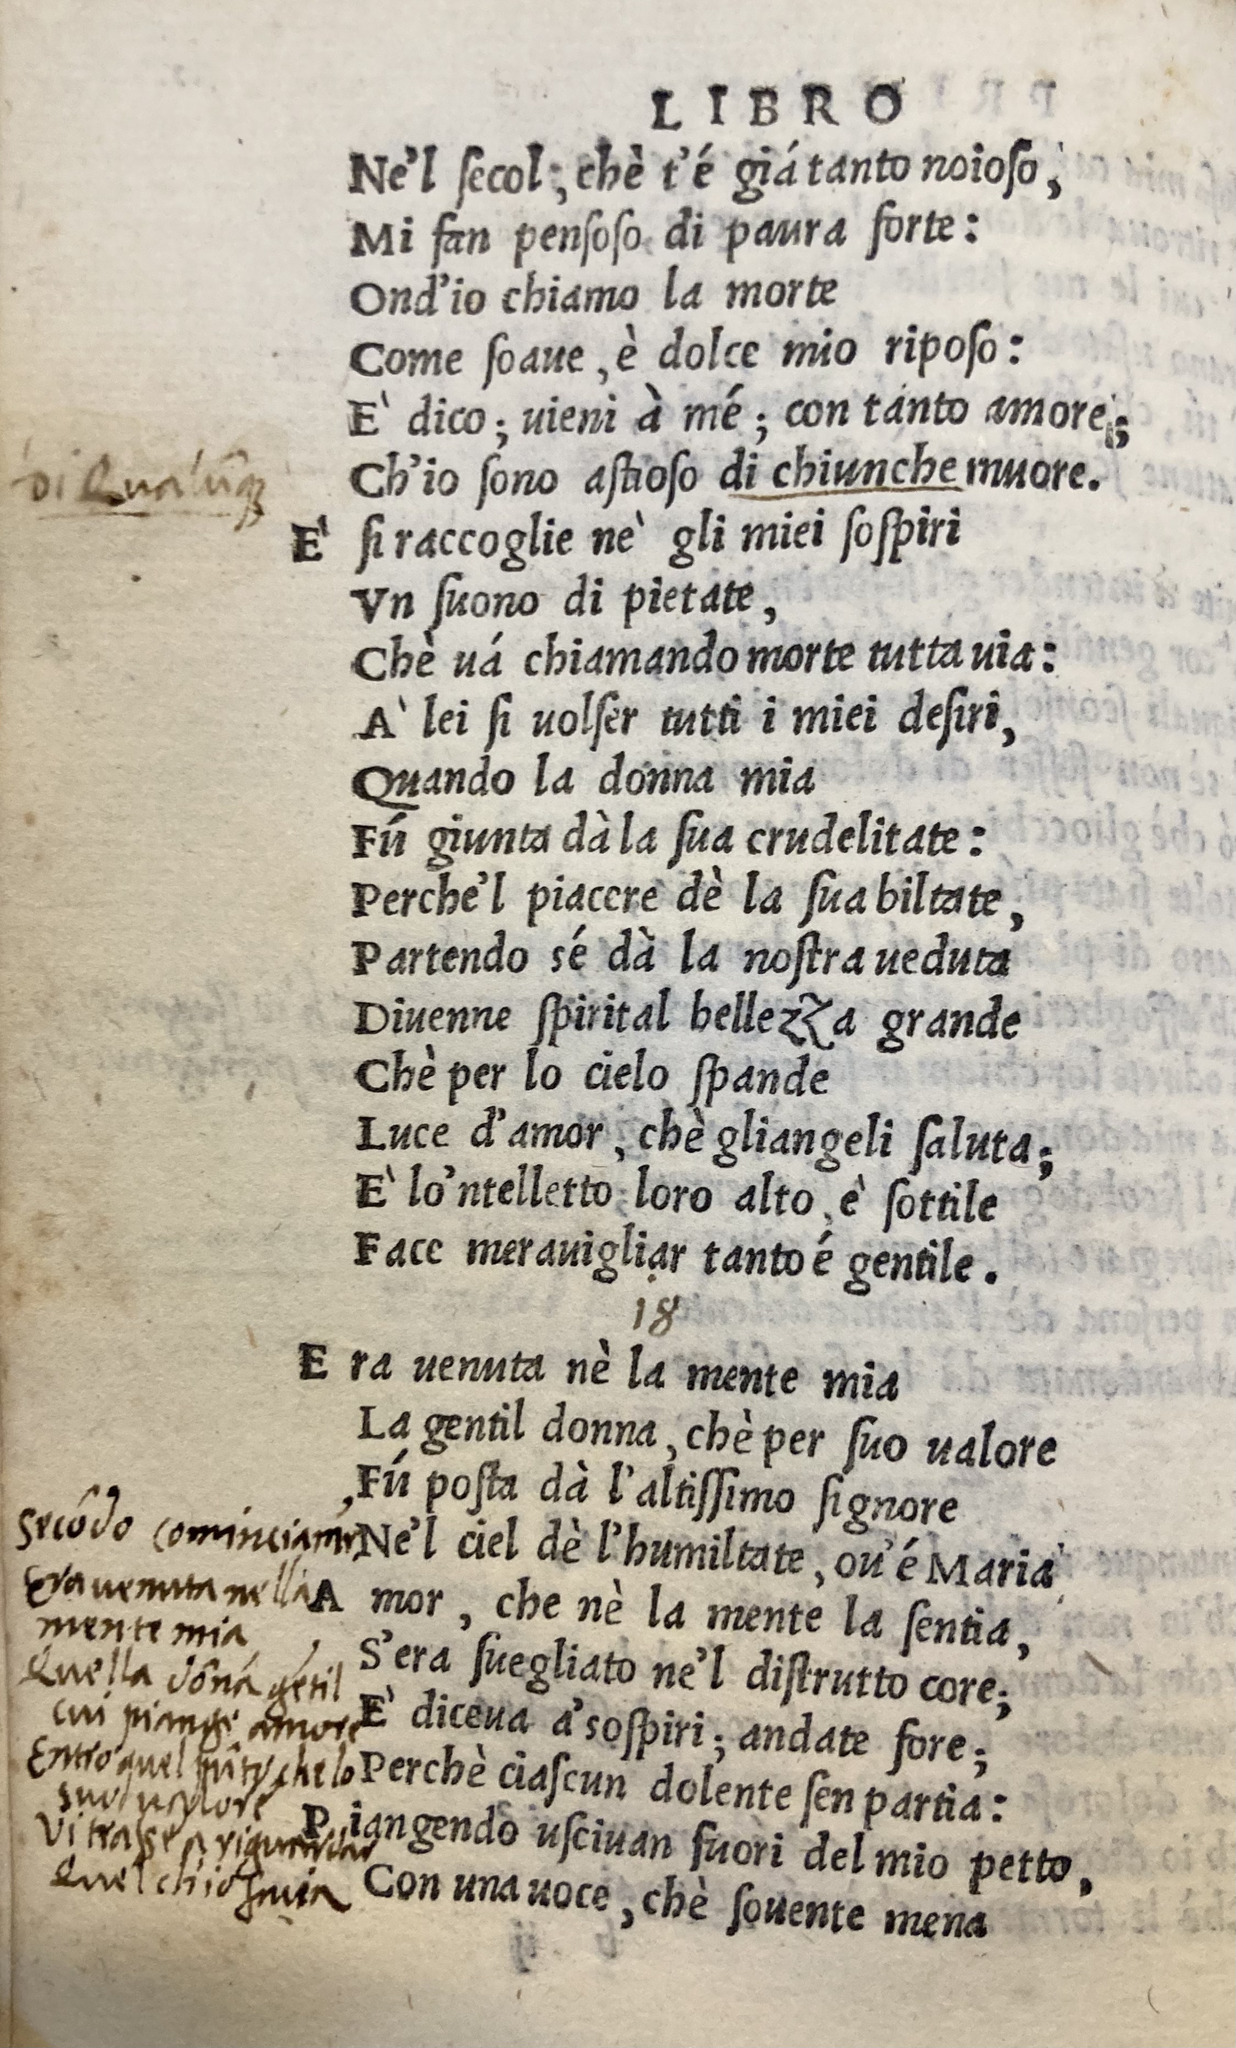 LIBRO
Ne'l ſecol; chè t'é giá tanto noioſo,
Mi fan penſoſo di paura forte:
Ond'io chiamo la morte
Come ſoaue, è dolce mio ripoſo:
E' dico; uieni à mé; con tanto amore;
Ch'io ſono aſtioſo di chiunche muore.
di Qualũq
E' ſi raccoglie ne' gli miei ſoſpiri
Vn ſuono di pietate,
Chè uá chiamando morte tutta uia:
A' lei ſi uolſer tutti i miei deſiri,
Quando la donna mia
Fú giunta dà la ſua crudelitate:
Perche'l piacere dè la ſua biltate,
Partendo sé dà la noſtra ueduta
Diuenne ſpirital bellezza grande
Chè per lo cielo ſpande
Luce d'amor, chè gliangeli ſaluta;
E' lo'ntelletto loro alto, è ſottile
Face merauigliar tanto é gentile.
18
Era uenuta nè la mente mia
La gentil donna, chè per ſuo ualore
Fú poſta dà l'altiſſimo ſignore
Ne'l ciel dè l'humiltate, ou'é Maria
Amor, che nè la mente la ſentia,
S'era ſuegliato ne'l diſtrutto core;
E' diceua a' soſpiri; andate fore;
Perchè ciaſcun dolente ſen partia:
Piangendo uſciuan fuori del mio petto,
Con una uoce, chè ſouente mena
Secõdo
Era uenuta nella
mente mia
Quella dõna gẽtil
cui piange amore
Entro quel pũto, che lo
suo ualore
Vi trasse a riguardar
Quel chio facia
b ij